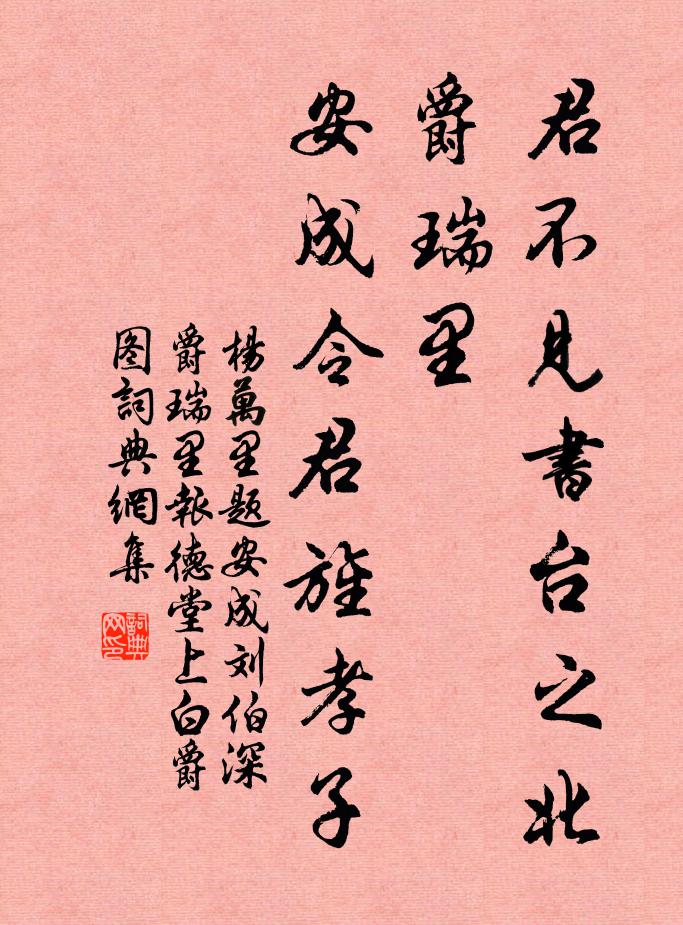 君不見書台之北
爵瑞里
安成令君旌孝子
楊萬里题安成刘伯深
爵瑞里報德堂上白爵
图詞典網集
詞典
网印